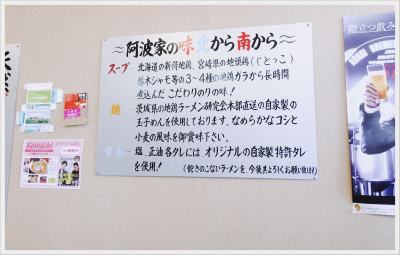 ～阿波家の味北から南から～
スープ 北海道の新得地鶏、宮崎県の地頭鶏(じとっこ)
栃木シャモ等の3～4種の地鶏ガラから長時間
煮込んだ こだわりのの味!
麺 － 茨城県の地鶏ラーメン研究会本部直送の自家製の
玉子めんを使用しております、なめらかなコシと
小麦の風味を御賞味下さい。
タレ － 塩、正油各タレには、オリジナルの自家製特許タレ
を使用! (飽きのこないラーメンを、今後共よろしくお願い致します)
Komachi
際立つ飲み